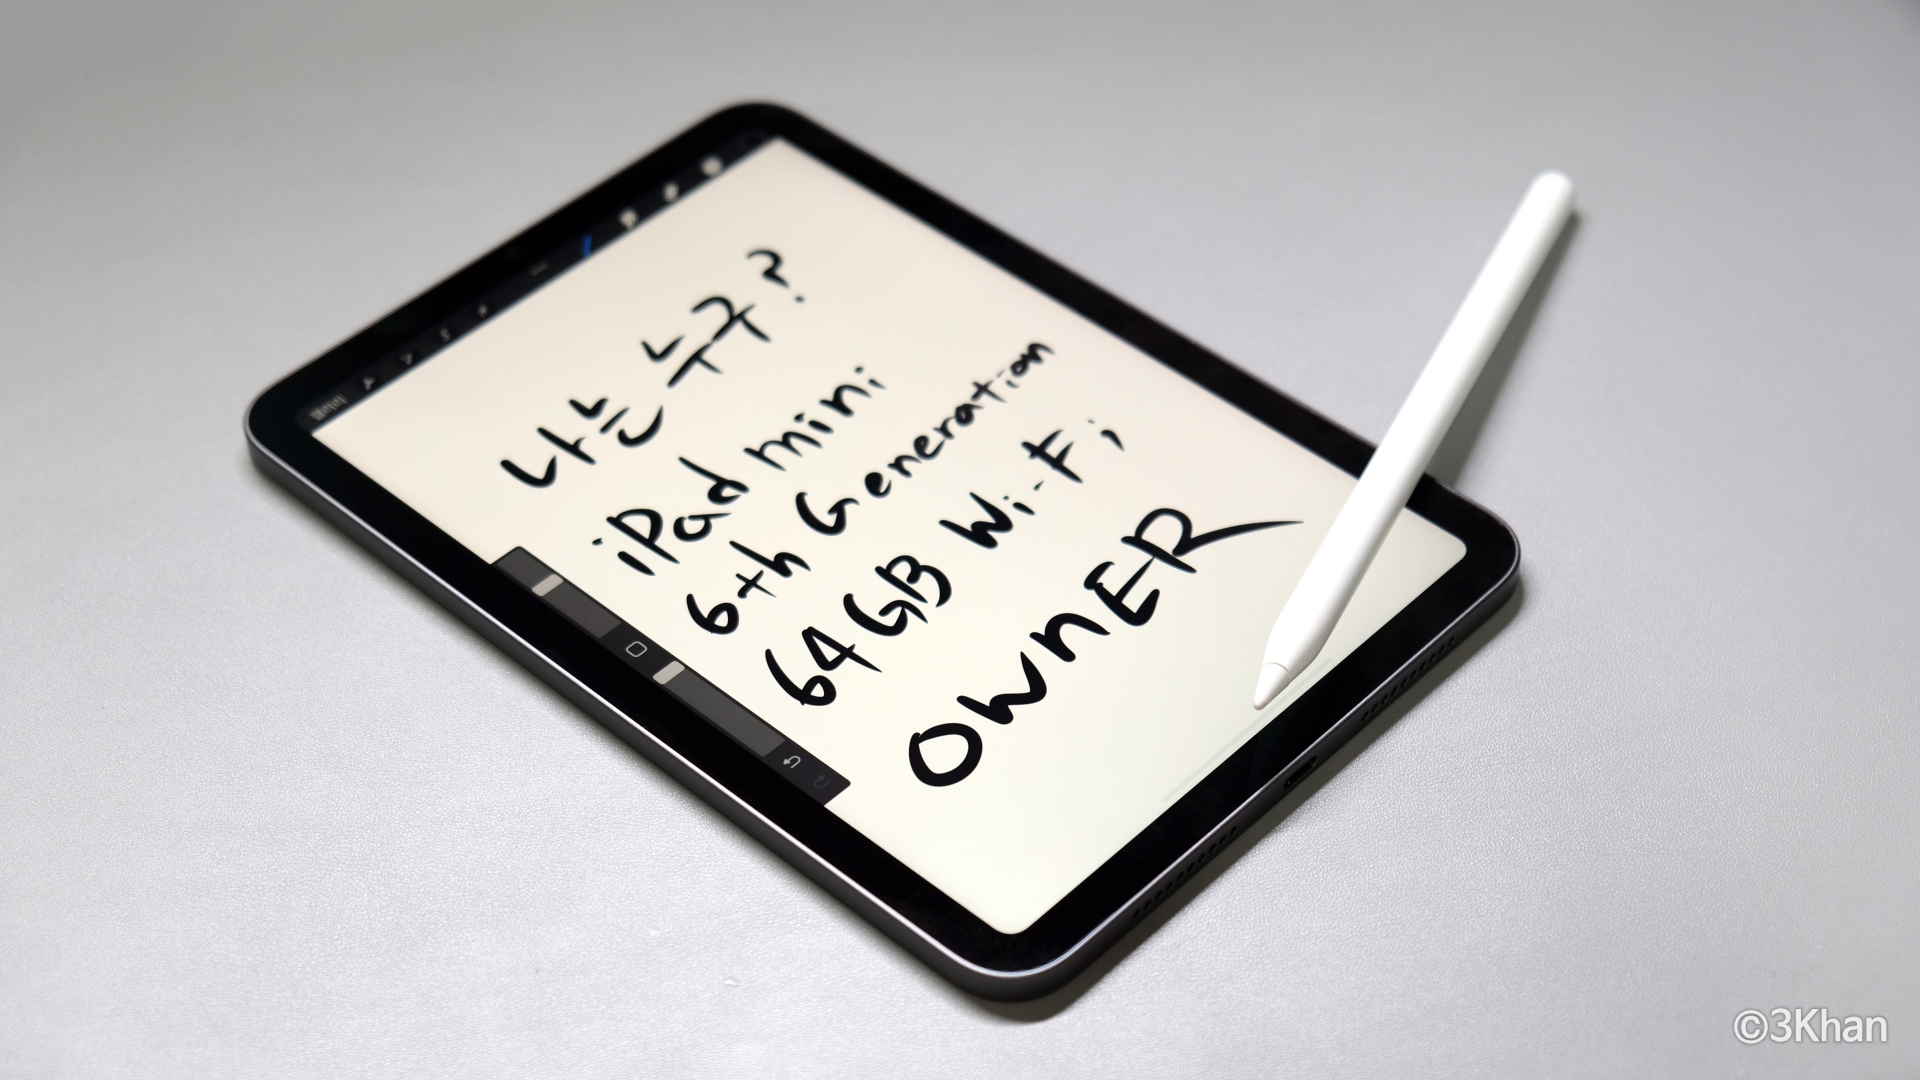 갤러리
나는 누구?
iPad mini
6th Generation
64GB Wi-Fi
OWNER
©3Khan